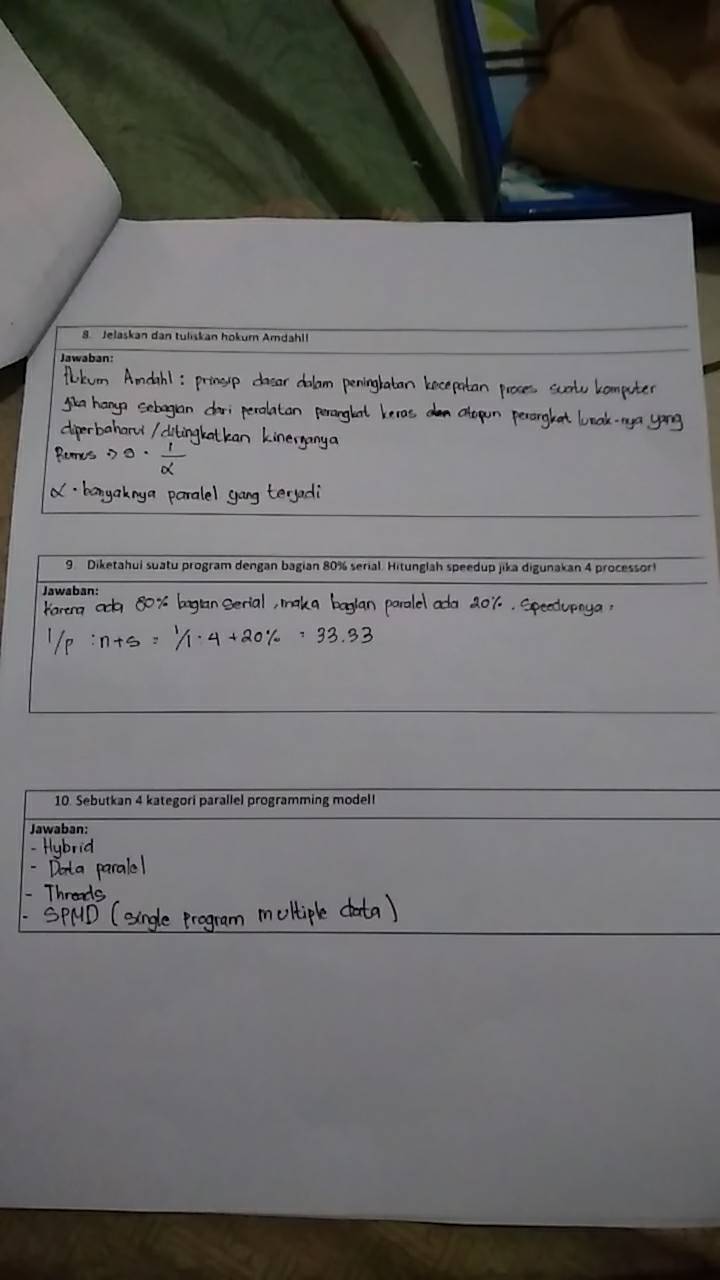 8. Jelaskan dan tuliskan hokum Amdahl!
Jawaban:
Hukum Amdahl : prinsip dasar dalam peningkatan kecepatan proses suatu komputer
jika hanya sebagian dari peralatan perangkat keras dan ataupun perangkat lunak-nya yang
diperbaharui / ditingkatkan kinerjanya
Rumus => 1/α
α = banyaknya paralel yang terjadi
9. Diketahui suatu program dengan bagian 80% serial. Hitunglah speedup jika digunakan 4 processor!
Jawaban:
Karena ada 80% bagian serial, maka bagian paralel ada 20%. Speedupnya :
1/p : n+s = 1/1 . 4 + 20% = 33.33
10. Sebutkan 4 kategori parallel programming model!
Jawaban:
- Hybrid
- Data paralel
- Threads
- SPMD (single program multiple data)